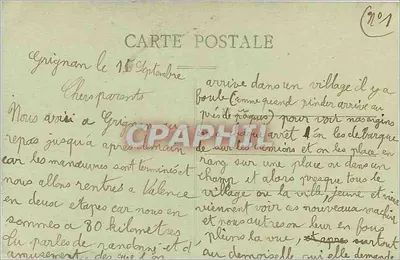 (n°1
CARTE POSTALE
Grignan le 15 Septembre
Chers parents
Nous à Grignan
repos jusqu'a après demain
car les manœuvres sont terminés et
nous allons rentres a Valence
en deux etapes car nous en
sommes a 80 kilometres
tu parles de randonne et d'
amusement
arrive dans un village il y a
foule (comme quand pinder arrive au
près de pâques) pour voir nos engins
arrêt on les debarque
de sur les camions et on les place en
rang sur une place ou dans un
champ et alors presque tous le
village ou la ville jeune et vieux
viennent voir ces nouveaux machin
et nous autres on leur en fous
plein la vue, surtout
au demoiselle qui elle demande
CPARAMA